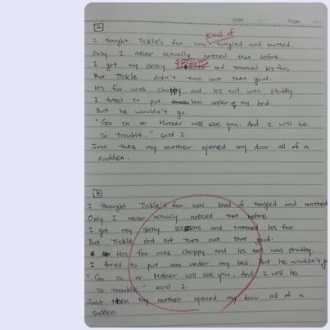 Date Page
A
kind of
I thought Tickle's fur was tangled and matted
Only I never actually noticed that before.
I got my skinny and trimmed his fur,
But Tickle didn't turn out that good.
His fur was choppy and his tail was stubby.
I tried to put him under my bed
But he wouldn't go.
"Go in or Mother will see you. And I will be
in trouble." said I
Just then my mother opened my door all of a
sudden.
B
I thought Tickle's fur was kind of tangled and matted
Only I never actually noticed that before
I got my skinny scissors and trimmed his fur
But Tickle did not turn out that good.
His fur was choppy and his tail was stubby.
I tried to put him under my bed. But he wouldn't go
"Go in or Mother will see you. And I will be
in trouble" said I
Just then my mother opened my door all of a
sudden